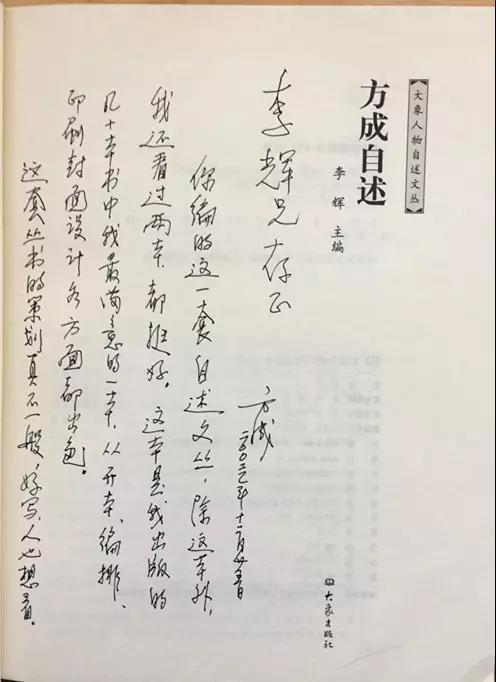 【大象人物自述文丛】
方成自述
李 辉 主编
大象出版社
李辉兄存正
方成
二〇〇三年十二月廿五日
你编的这一套自述文丛，除这本外，
我还看过两本，都挺好。这本是我出版的
几十本书中我最满意的一本，从开本、编排、
印刷封面设计各方面都出色。
这套丛书的策划真不一般，好写，人也想看。